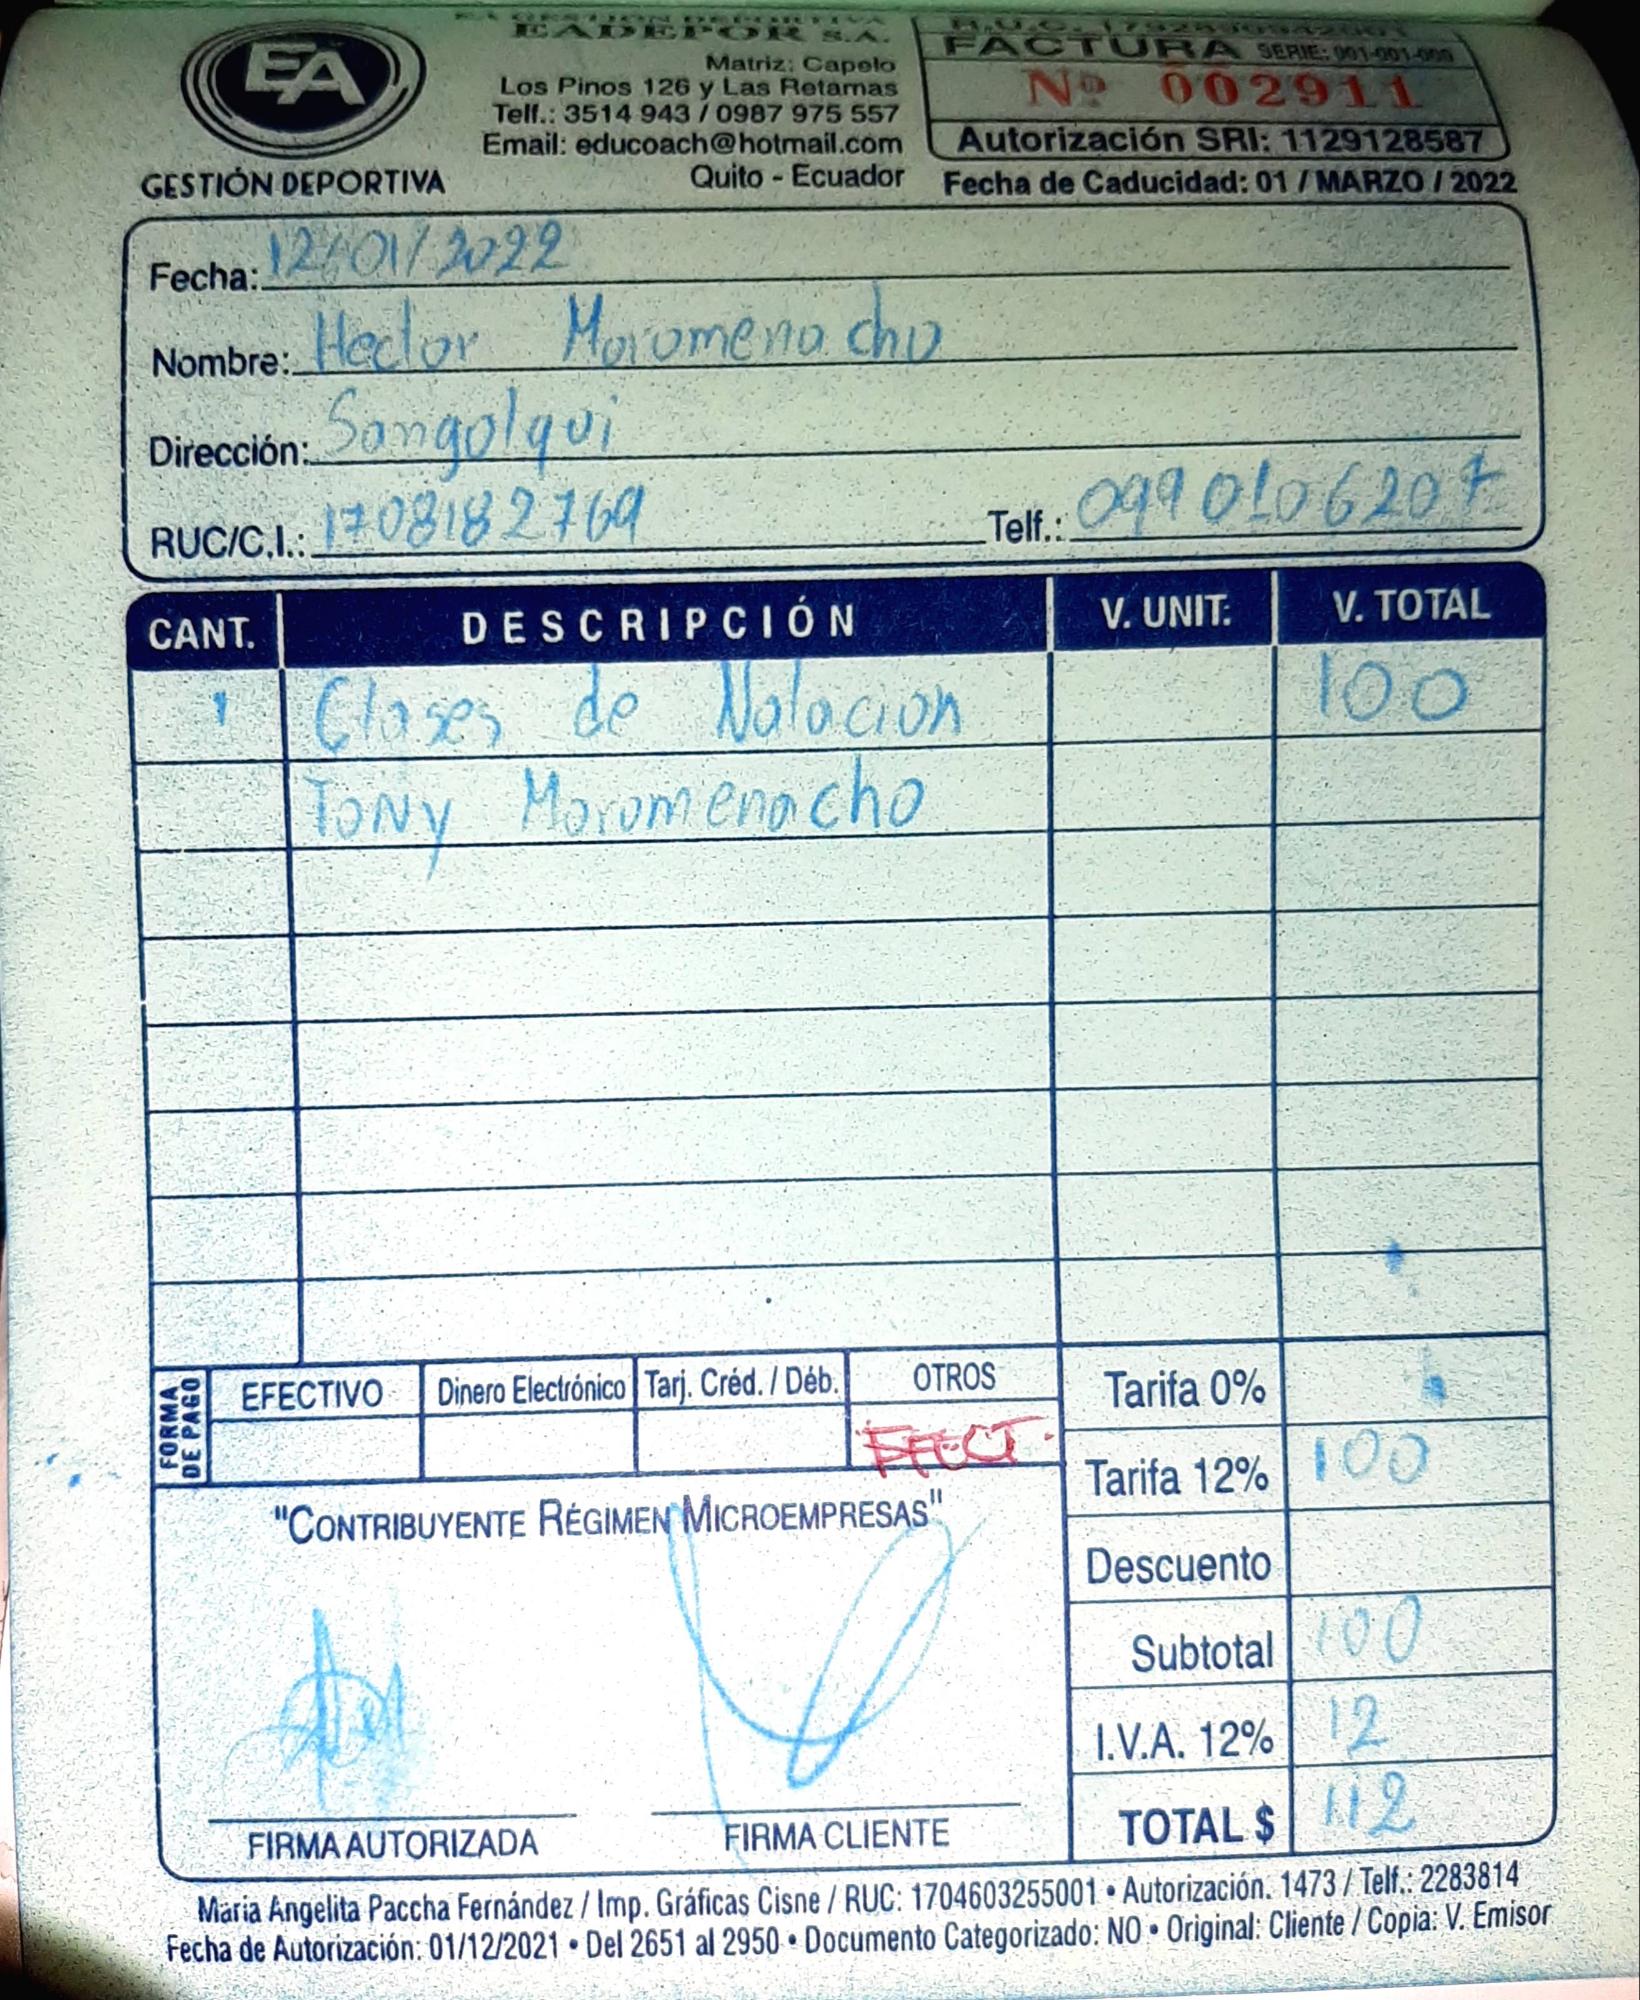 EA
GESTIÓN DEPORTIVA
EA GESTION DEPORTIVA
EADEPOR S.A.
Matriz: Capelo
Los Pinos 126 y Las Retamas
Telf.: 3514 943 / 0987 975 557
Email: educoach@hotmail.com
Quito - Ecuador
FACTURA SERIE: 001-001-000
Nº 002911
Autorización SRI: 1129128587
Fecha de Caducidad: 01 / MARZO / 2022
Fecha: 12/01/2022
Nombre: Hector Moromenacho
Dirección: Sangolqui
RUC/C.I.: 1708182769 Telf.: 0990106207
CANT. DESCRIPCIÓN V. UNIT: V. TOTAL
1 Clases de Natacion 100
Tony Moromenacho
FORMA DE PAGO
EFECTIVO Dinero Electrónico Tarj. Créd. / Déb. OTROS
EFECT.
Tarifa 0%
Tarifa 12% 100
Descuento
Subtotal 100
I.V.A. 12% 12
TOTAL $ 112
"CONTRIBUYENTE RÉGIMEN MICROEMPRESAS"
FIRMA AUTORIZADA FIRMA CLIENTE
Maria Angelita Paccha Fernández / Imp. Gráficas Cisne / RUC: 1704603255001 • Autorización. 1473 / Telf.: 2283814
Fecha de Autorización: 01/12/2021 • Del 2651 al 2950 • Documento Categorizado: NO • Original: Cliente / Copia: V. Emisor